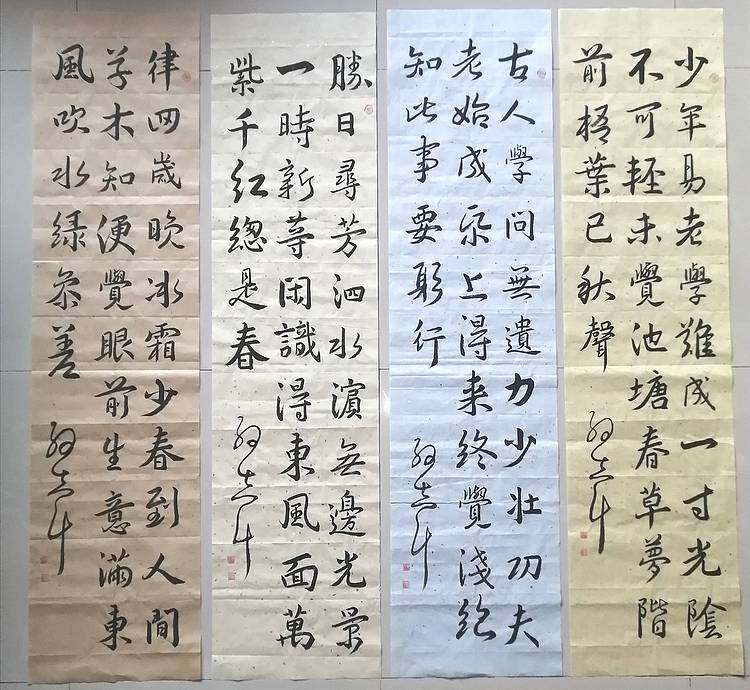 少年易老學難成一寸光陰
不可輕未覺池塘春草夢階
前梧葉已秋聲
古人學問無遺力少壯功夫
老始成紙上得来終覺淺絕
知此事要躬行
勝日尋芳泗水濱無邊光景
一時新等闲識得東風面萬
紫千红總是春
律回歲晚冰霜少春到人間
草木知便覺眼前生意滿東
風吹水绿参差